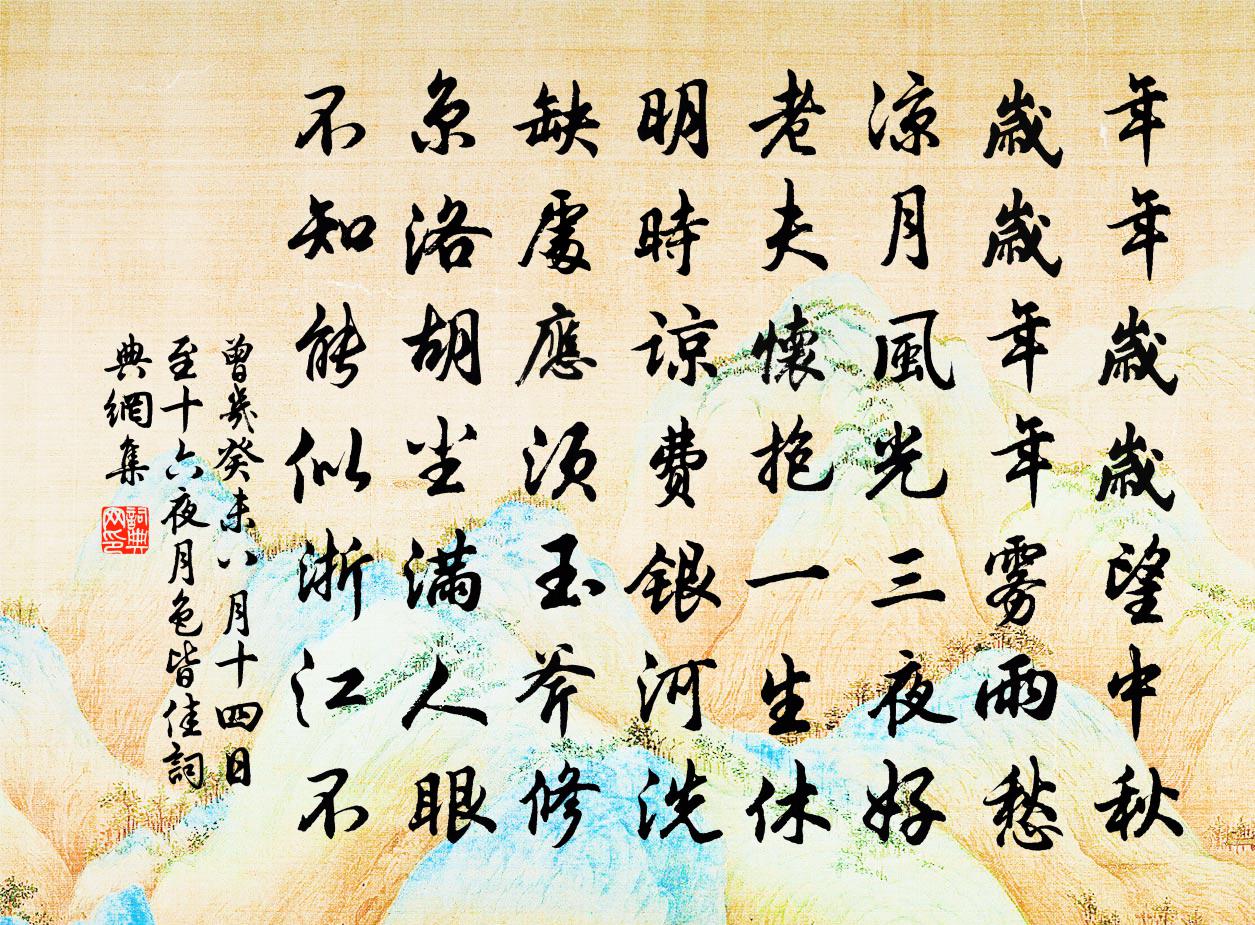 年年歲歲望中秋
歲歲年年霧雨愁
涼月風光三夜好
老夫懷抱一生休
明時諒費銀河洗
缺處應須玉斧修
京洛胡尘滿人眼
不知能似浙江不
曾幾癸未八月十四日
至十六夜月色皆佳詞
典網集
詞典
网印